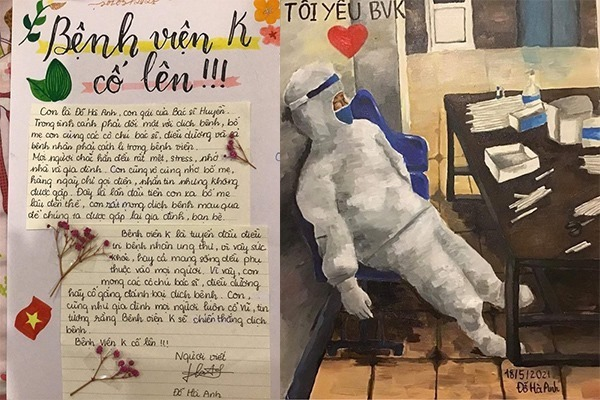 Bệnh viện K
cố lên!!!
Con là Đỗ Hà Anh, con gái của Bác sĩ Huyền.
Trong tình cảnh phải đối mặt với dịch bệnh, bố
mẹ con cùng các cô chú bác sĩ, điều dưỡng và cả
bệnh nhân phải cách li trong bệnh viện.
Mọi người chắc hẳn đều rất mệt, stress, nhớ
nhà và gia đình. Con cũng vô cùng nhớ bố mẹ,
hàng ngày chỉ gọi điện, nhắn tin nhưng không
được gặp. Đây là lần đầu tiên con xa bố mẹ
lâu đến thế, con rất mong dịch bệnh mau qua
để chúng ta được gặp lại gia đình, bạn bè.
Bệnh viện K là tuyến đầu điều
trị bệnh nhân ung thư, vì vậy sức
khỏe, hay cả mạng sống đều phụ
thuộc vào mọi người. Vì vậy, con
mong các cô chú bác sĩ, điều dưỡng
hãy cố gắng đánh bại dịch bệnh. Con
cũng như gia đình mọi người luôn cổ vũ, tin
tưởng rằng Bệnh viện K sẽ chiến thắng dịch
bệnh.
Bệnh viện K cố lên!!!
Người viết
Đỗ Hà Anh
TÔI YÊU BVK
18/5/2021
Đỗ Hà Anh